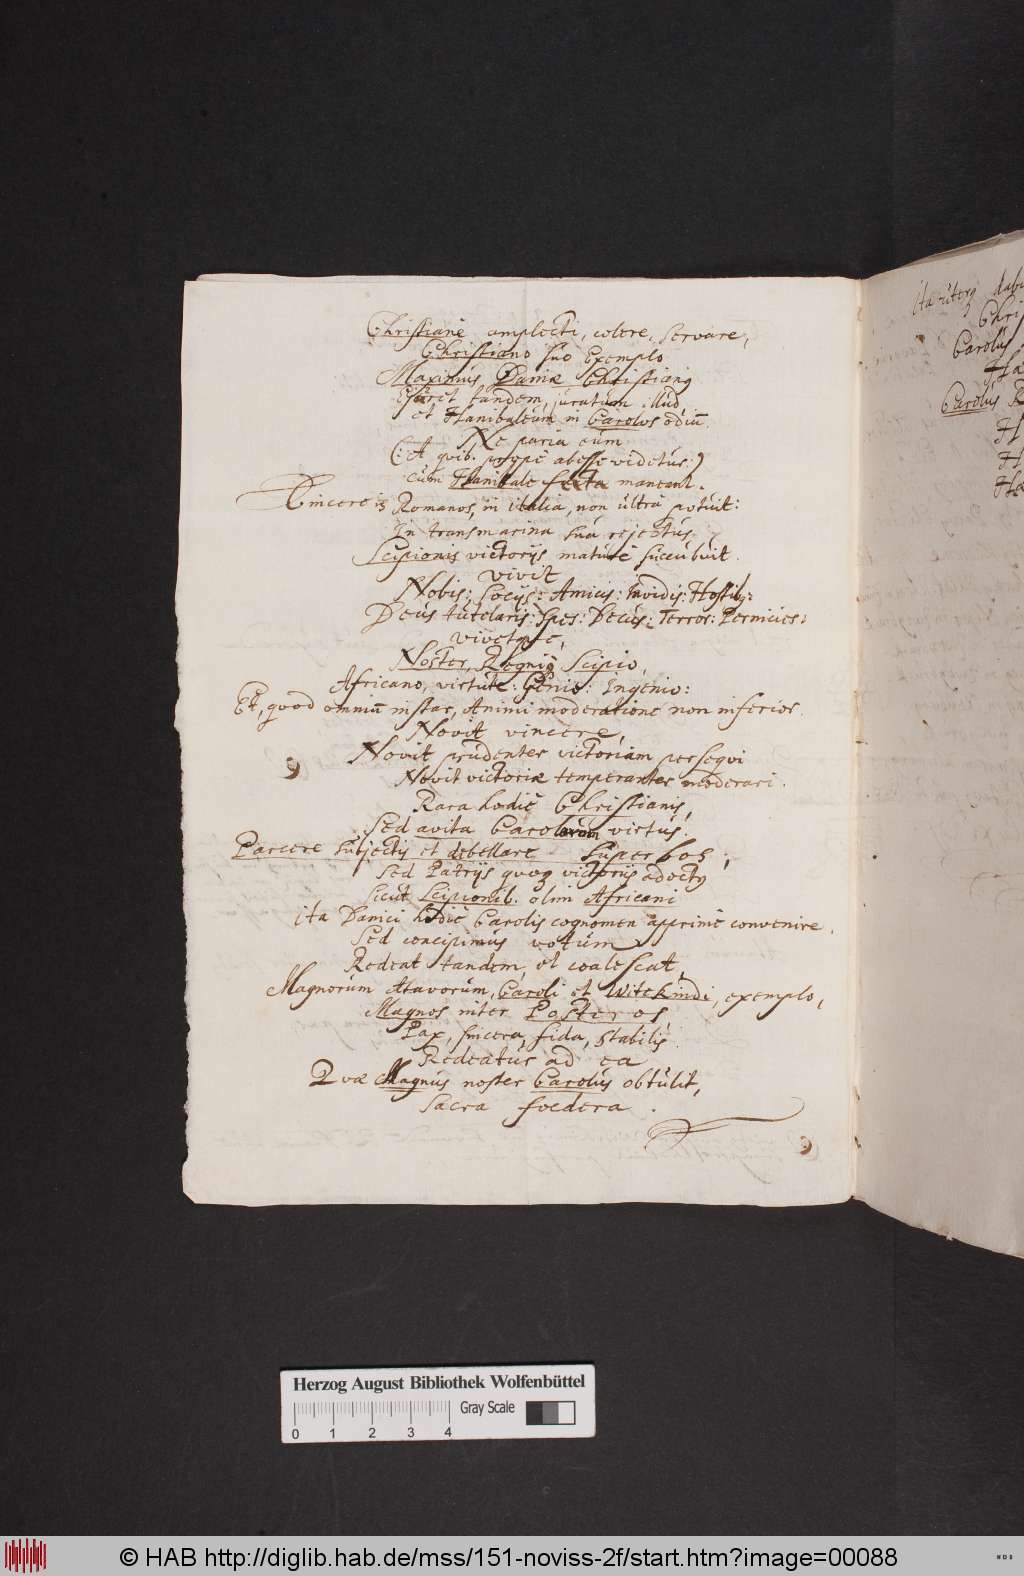 Christianè amplecti, colere, servare,
Christiano suo Exemplo
Maximus Daniæ Christianq
Ejuret tandem, juratum illud
et Hanibaleum in Carolos odiū.
Ne paria cum
(: A quib. propè abesse videtur :)
cum Hanibale fata maneant.
Vincere is Romanos, in italia, non ultra potuit:
In transmarina sua rejectus
Scipionis victorijs maturè succubuit.
vivit
Nobis: Socijs: Amicis: Invidis: Hostibq:
Deus tutelaris: Spes: Decus: Terror: Pernicies:
vivetque,
Noster, Regniq Scipio,
Africano, virtute: Genio: Ingenio:
Et, quod omniū instar, Animi moderatione non inferior.
Novit vincere,
Novit prudenter victoriam persequi
Novit victoriæ temperanter moderari.
Rara hodiè Christianis,
Sed avita Carolorum virtus.
Parcere subjectis et debellare Superbos;
Sed Patrijs quoq victorijs adoctq
sicut Scipionib. olim Africani
ita Danici hodiè Carolis cognomen apprimè convenire.
Sed concipimus votum
Redeat tandem, et coalescat,
Magnorum Atavorum, Caroli et Witekindi, exemplo,
Magnos inter Posteros,
Pax, sincera, fida, stabilis.
Redeatur ad ea
Quæ Magnus noster Carolus obtulit,
Sacra foedera.
ita uterq
Carolus
Carolus
Herzog August Bibliothek Wolfenbüttel
Gray Scale
0 1 2 3 4
© HAB http://diglib.hab.de/mss/151-noviss-2f/start.htm?image=00088